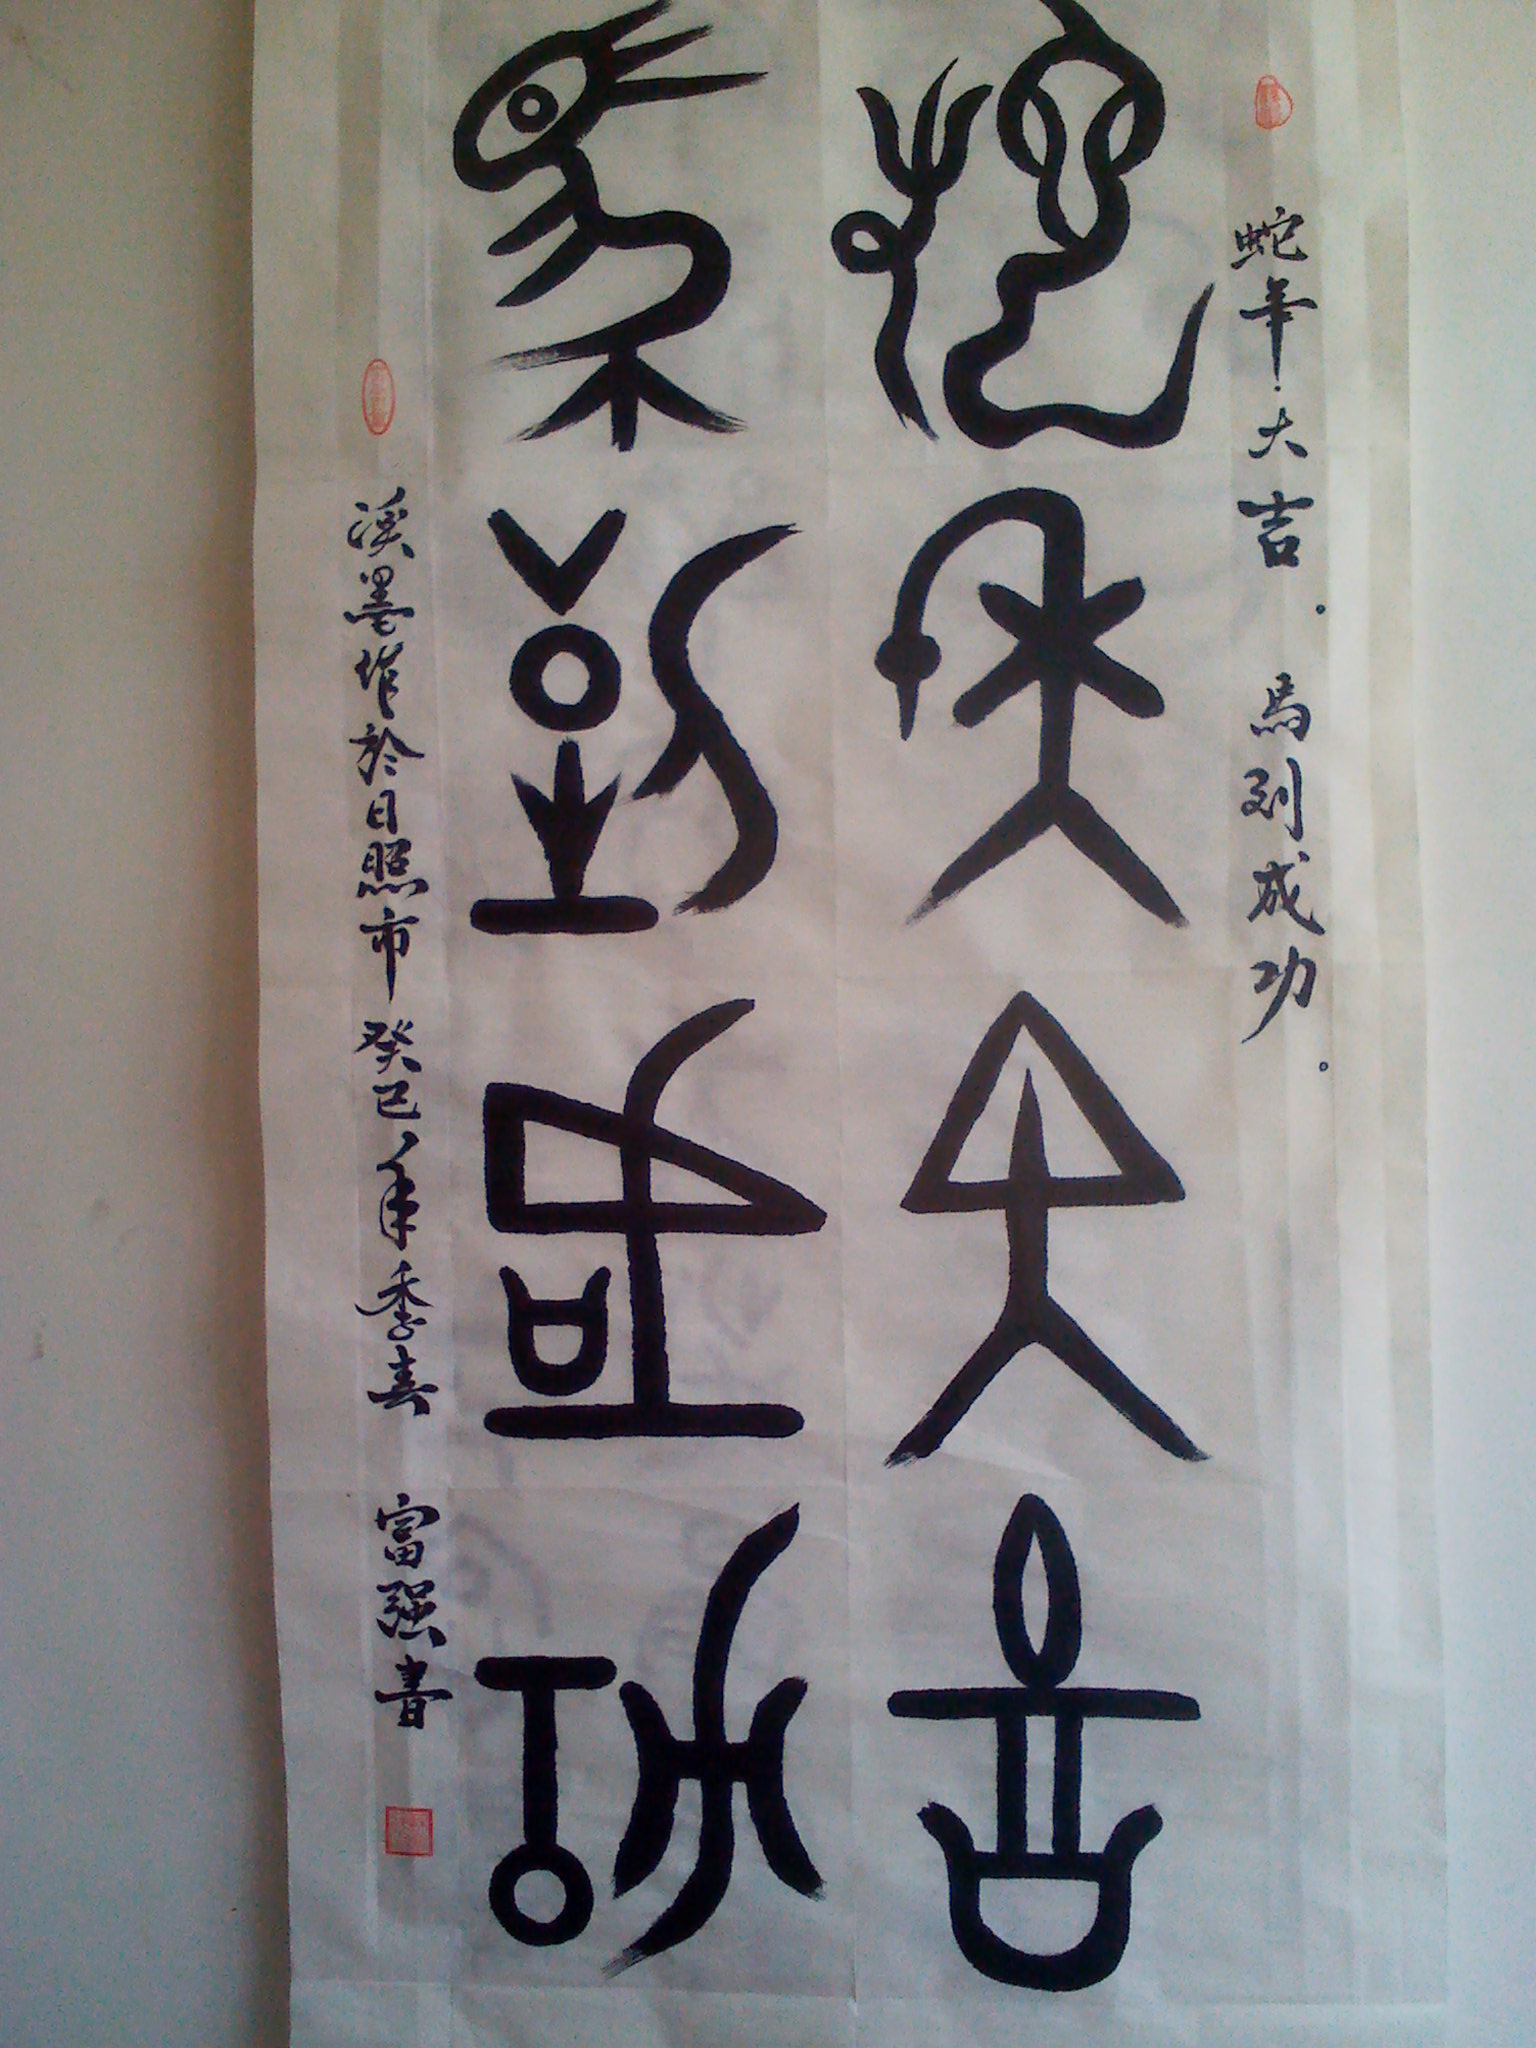 蛇年大吉。馬到成功。
蛇年大吉
馬到成功
溪墨作於日照市癸巳年季春 富强書